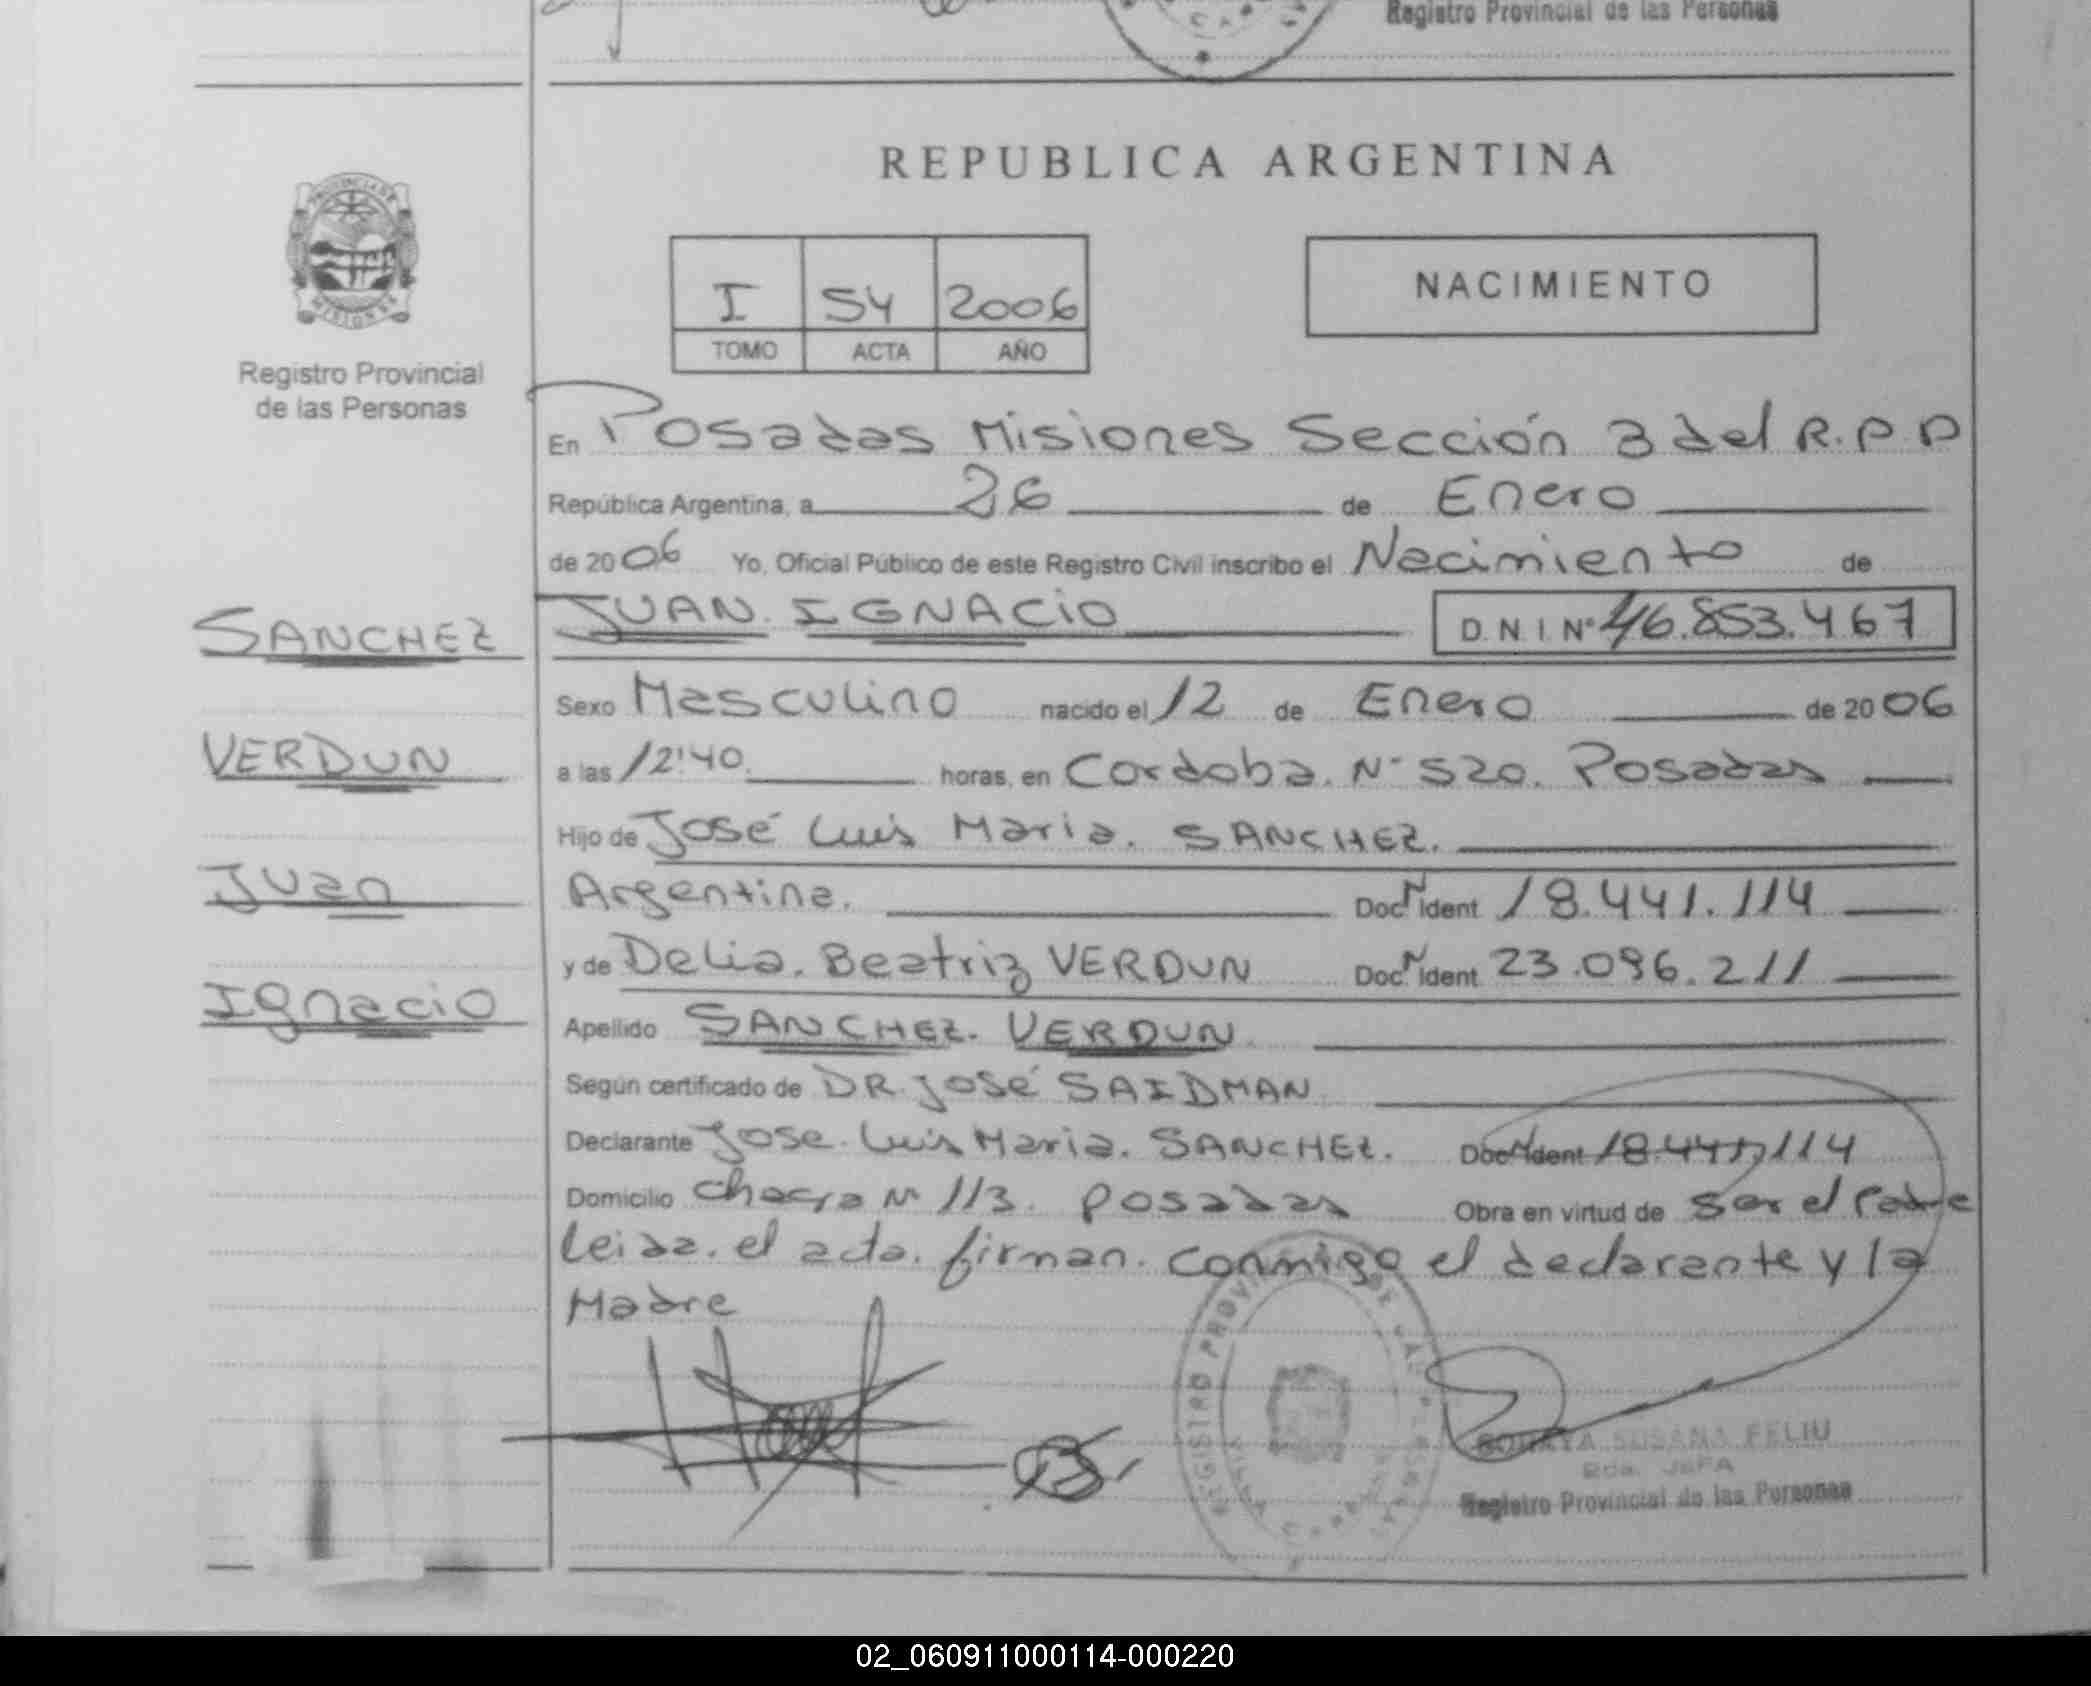 Registro Provincial de las Personas
REPUBLICA ARGENTINA
PROVINCIA DE
MISIONES
Registro Provincial
de las Personas
I 54 2006
TOMO ACTA AÑO
NACIMIENTO
En Posadas Misiones Sección 3 del R.P.P
República Argentina, a 26 de Enero
de 2006 Yo, Oficial Público de este Registro Civil inscribo el Nacimiento de
SANCHEZ
JUAN IGNACIO D.N.I. Nº 46.853.467
Sexo Masculino nacido el 12 de Enero de 2006
VERDUN
a las 12:40 horas, en Cordoba. Nº 520. Posadas
Hijo de José Luis Maria. SANCHEZ.
Juan
Argentina. Doc. N Ident 18.441.114
y de Delia. Beatriz VERDUN Doc. N Ident 23.096.211
Ignacio
Apellido SANCHEZ. VERDUN
Según certificado de DR. José SAIDMAN
Declarante Jose. Luis Maria. SANCHEZ. Doc. N Ident 18.441.114
Domicilio chacra Nº 113. Posadas Obra en virtud de ser el Padre
leida. el acta. firman. conmigo el declarante y la
Madre
REGISTRO PROVINCIAL DE LAS PERSONAS
SORAYA SUSANA FELIU
Rda. JEFA
Registro Provincial de las Personas
02_060911000114-000220